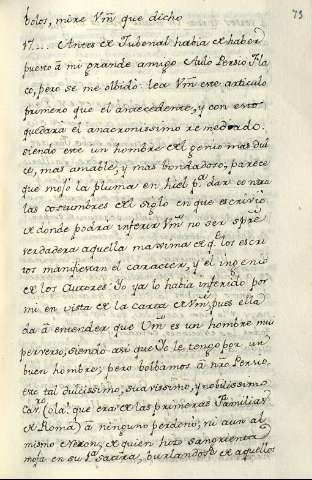 73
bolos, mire Vm que dicho
17.... Antes de Jubenal habia de haber
puesto â mi grande amigo Aulo Persio Fla
co, pero se me olbidô: lea Vm este articulo
primero que el antecedente, y con esto
quedarâ el anacronissimo remendado:
siendo este un hombre del genio mas dul
ce, mas amable, y mas bondadoso, parece
que mojô la pluma en hiel pa. dar contra
las costumbres del siglo en que escriviô
de donde podrâ inferir Vm no ser spre.
verdadera aquella maxima de q los escri
tos manifiestan el caracter, y el ingenio
de los Autores. Yo ya lo habia inferido por
mi en vista de la carta de Vm pues ella
da â entender que Vm es un hombre mui
perverso, siendo asi que Yo le tengo por un
buen hombre; pero bolbamos â nro. Persio.
este tal dulcissimo, suavissimo, y nobilissimo
Cavro. (ola! que era de las primeras Familias
de Roma) â ninguno perdonô, ni aun al
mismo Neron, de quien hizo sangrienta
mofa en su 1a. Satira, burlandose de aquellos